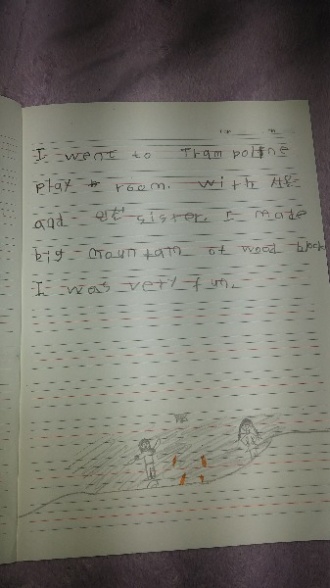 I went to Trampoline
play room. with
and sister. I made
big mountain of wood block
I was very fun.